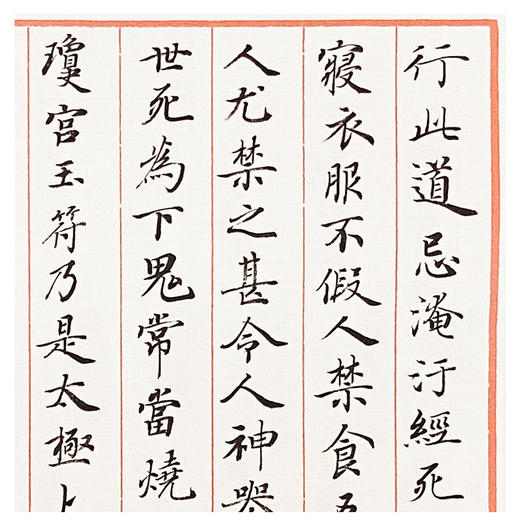 行此道忌淹汙經死
寢衣服不假人禁食
人尤禁之甚令人神
世死為下鬼常當燒
瓊宮玉符乃是太極